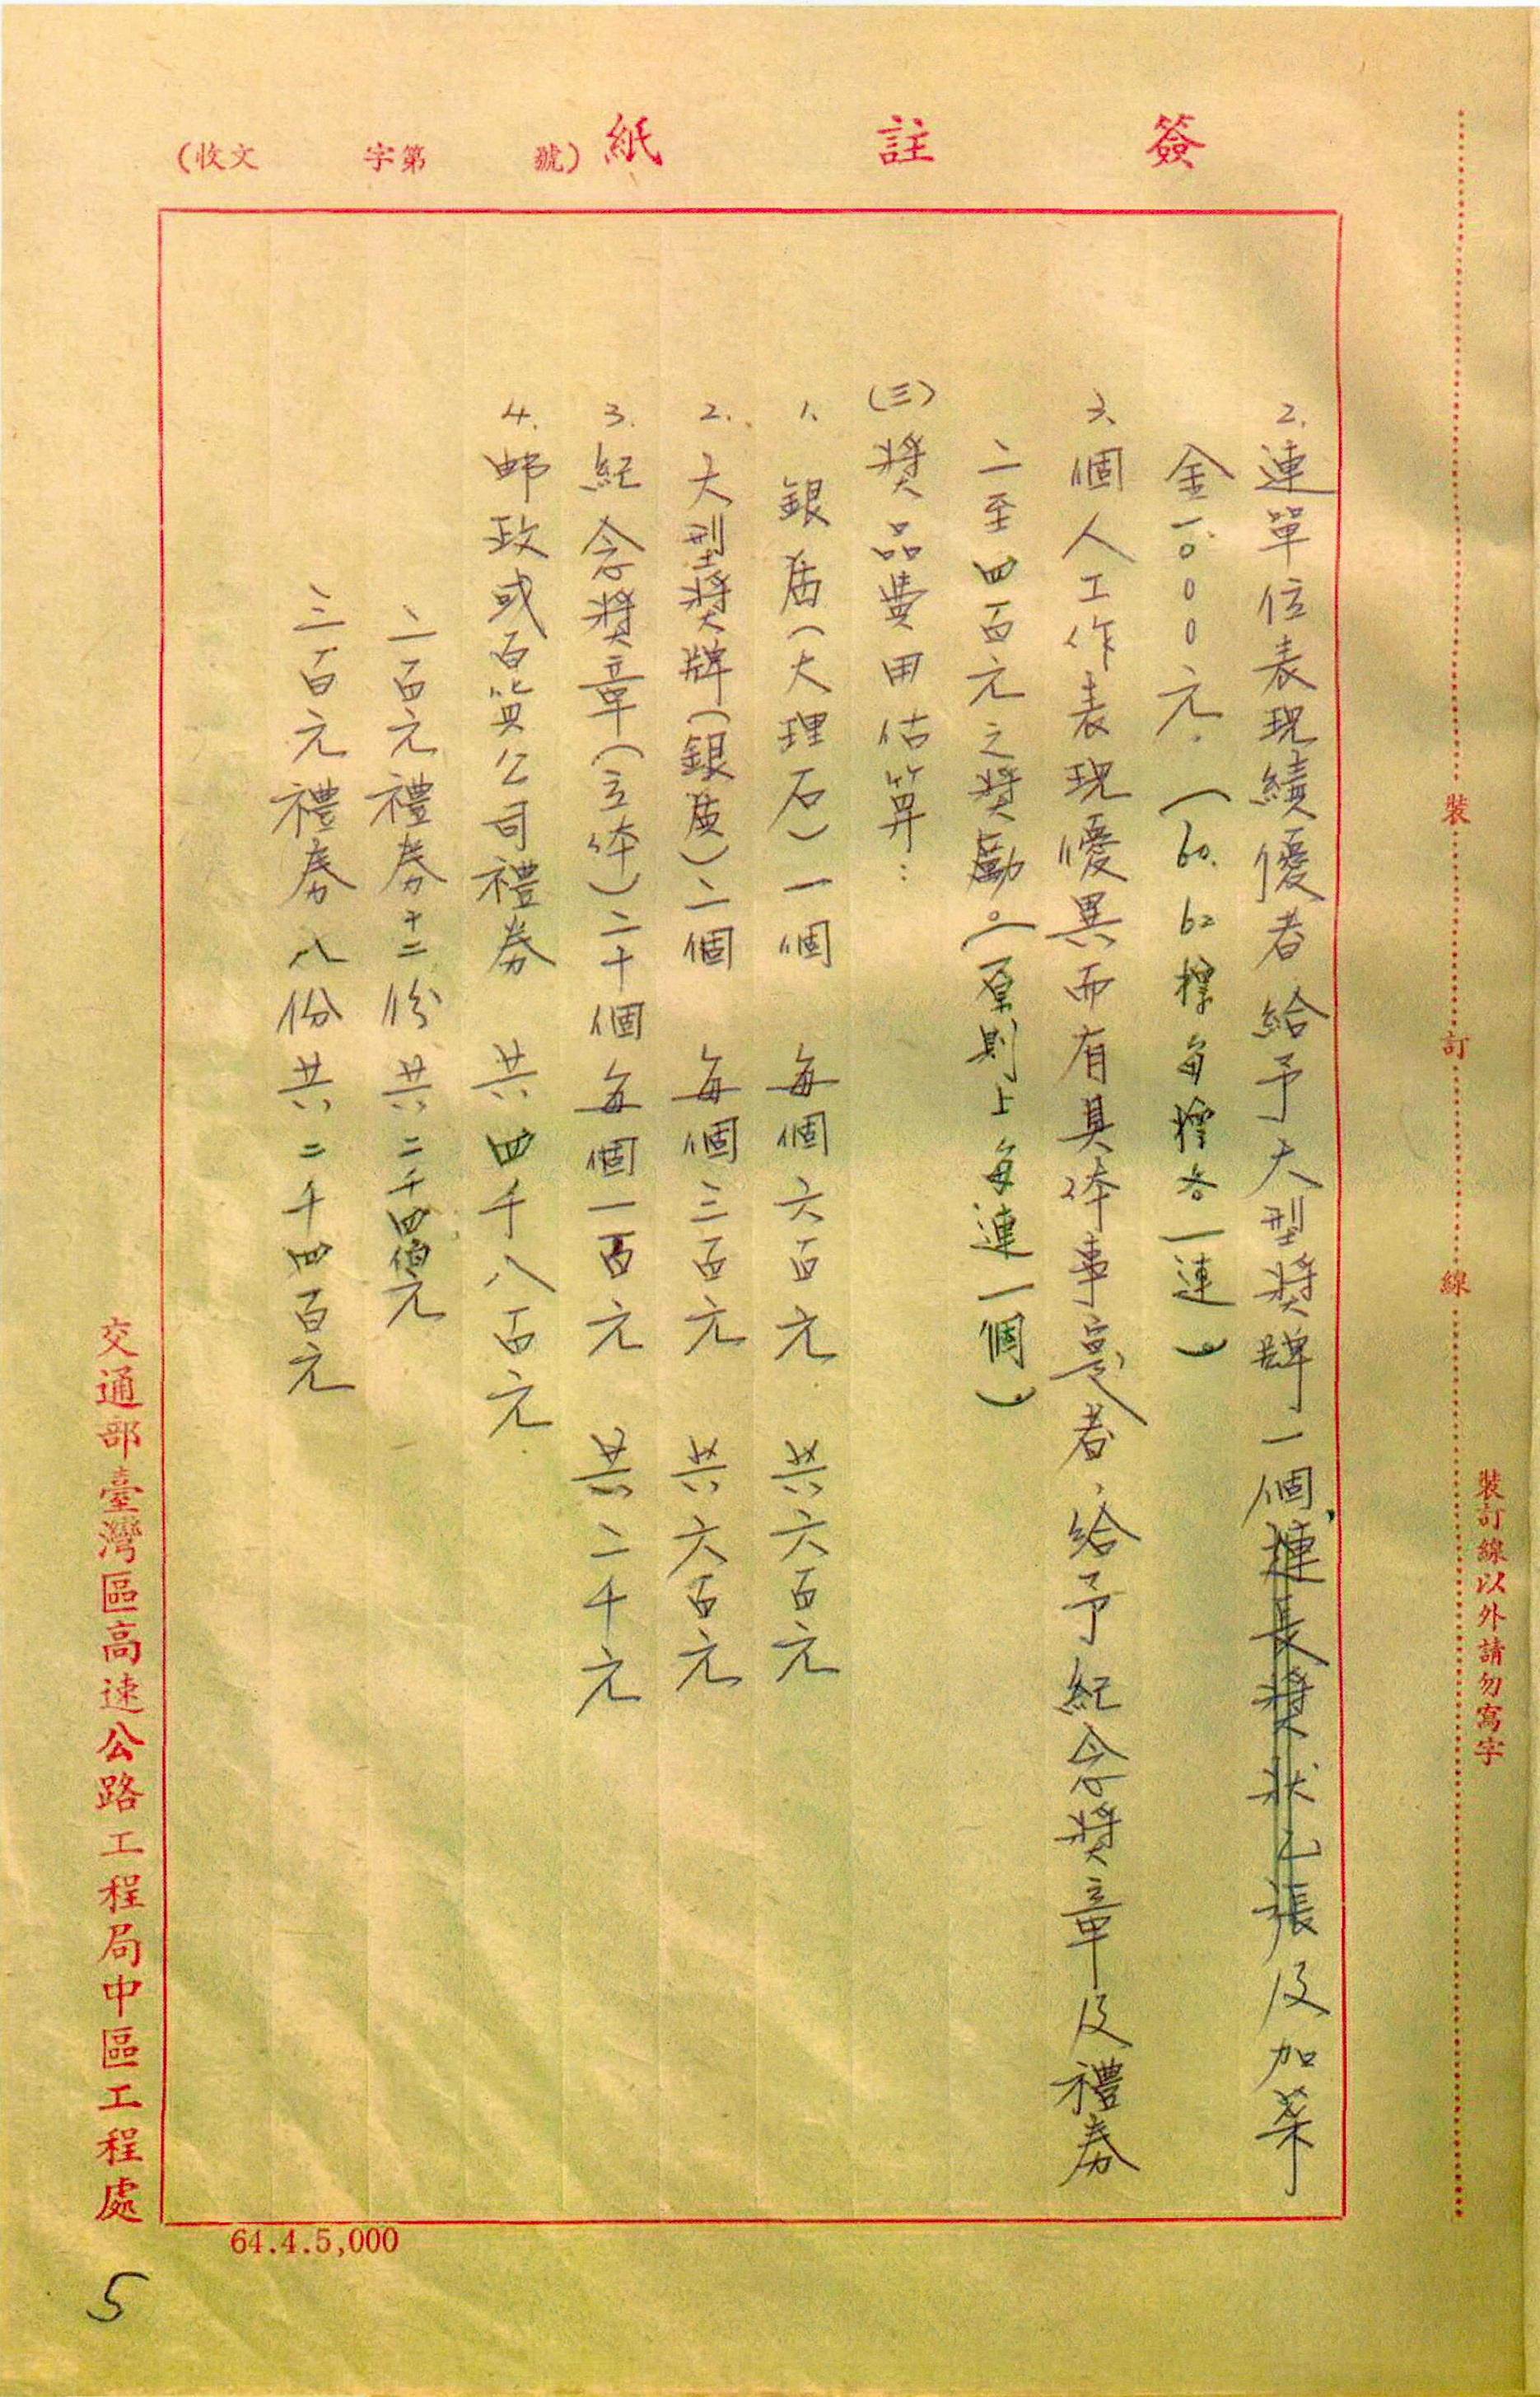 簽註紙
(收文 字第 號)
2.連單位表現績優者給予大型獎牌一個,連長獎狀乙張及加菜
金一000元.(60.62標每標各一連)
3、個人工作表現優異而有具体事蹟者、給予紀念獎章及禮券
二至四百元之獎勵。(原則上每連一個)
(三)獎品費用估算:
1、銀盾(大理石)一個 每個六百元 共六百元
2.大型獎牌(銀質)二個 每個三百元 共六百元
3.紀念獎章(立体)二十個 每個一百元 共二千元
4.郵政或百貨公司禮券 共四千八百元
二百元禮券十二份 共二千四佰元
三百元禮券 八份 共二千四百元
交通部臺灣區高速公路工程局中區工程處
64.4.5,000
5
裝 訂 線
裝訂線以外請勿寫字